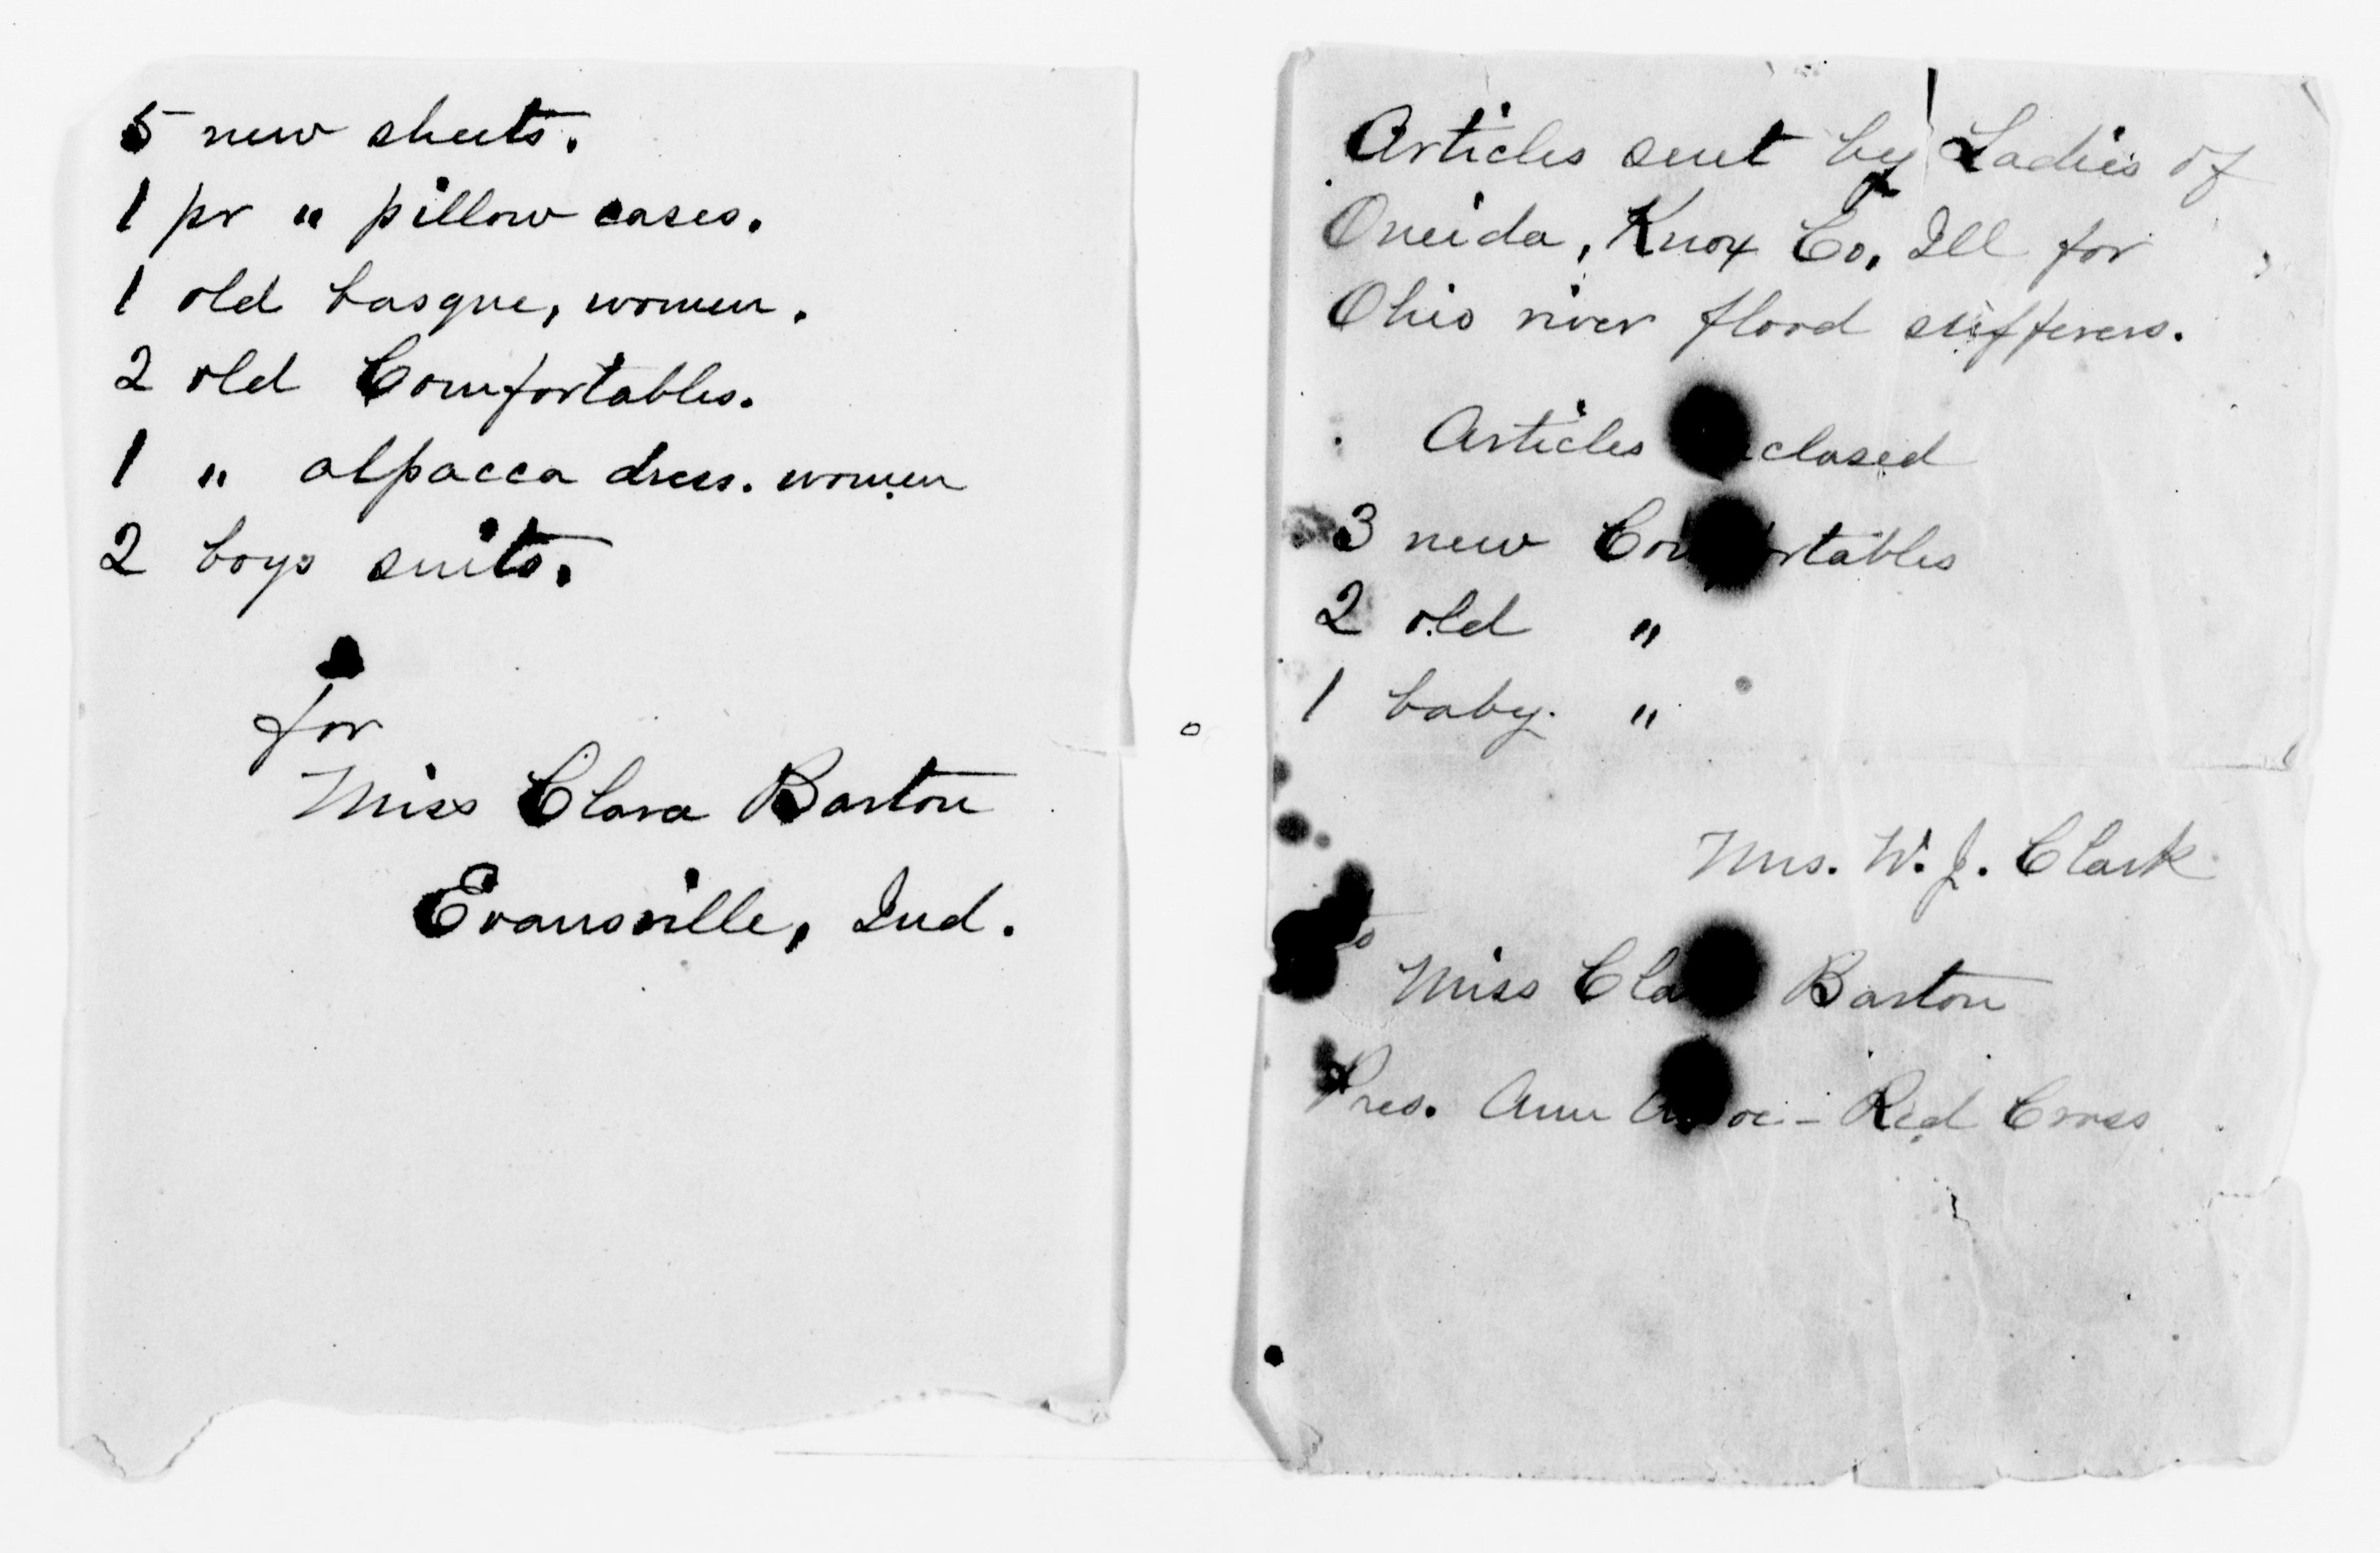 5 new sheets.
1 pr " pillow cases.
1 old basque, women.
2 old Comfortables.
1 " alpacca dress. women
2 boys suits.
for
Miss Clara Barton
Evansville, Ind.
Articles sent by Ladies of
Oneida, Knox Co, Ill for
Ohio river flood sufferers.
Articles
3 new
2 old "
1 baby. "
Mrs. W. J. Clark
Miss Barton
Pres. Am Red Cross